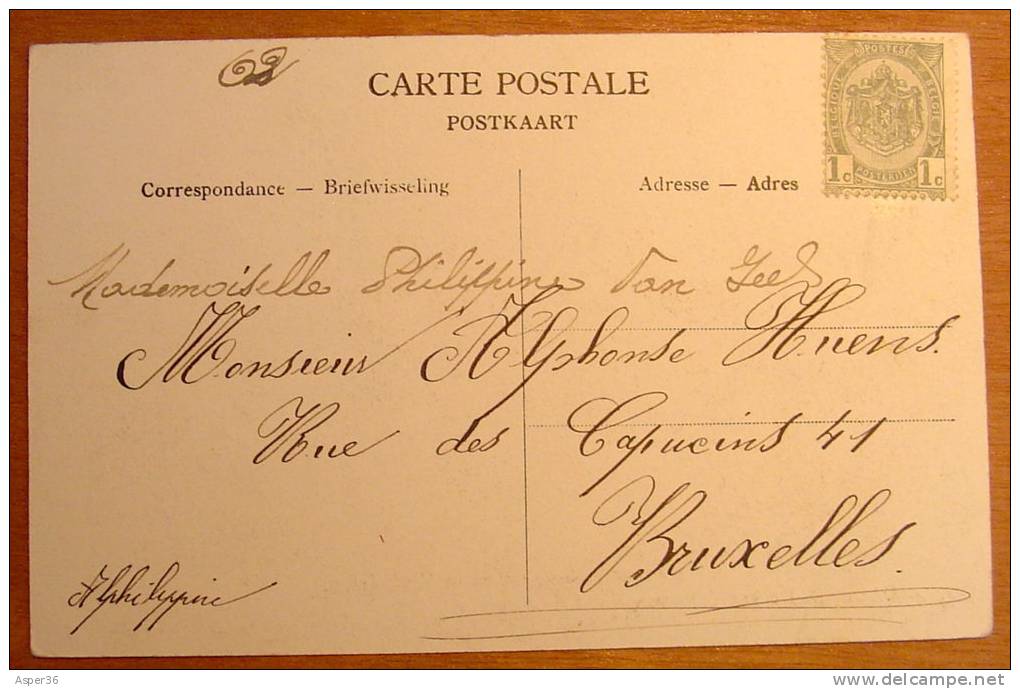 CARTE POSTALE
POSTKAART
POSTES
BELGIQUE
BELGIË
1c
1c
POSTERIJEN
Correspondance — Briefwisseling
Adresse — Adres
Mademoiselle Philippine Van
Monsieur Alphonse Huens.
Rue des Capucins 41
Bruxelles.
Alphilippine
Asper36
www.delcampe.net